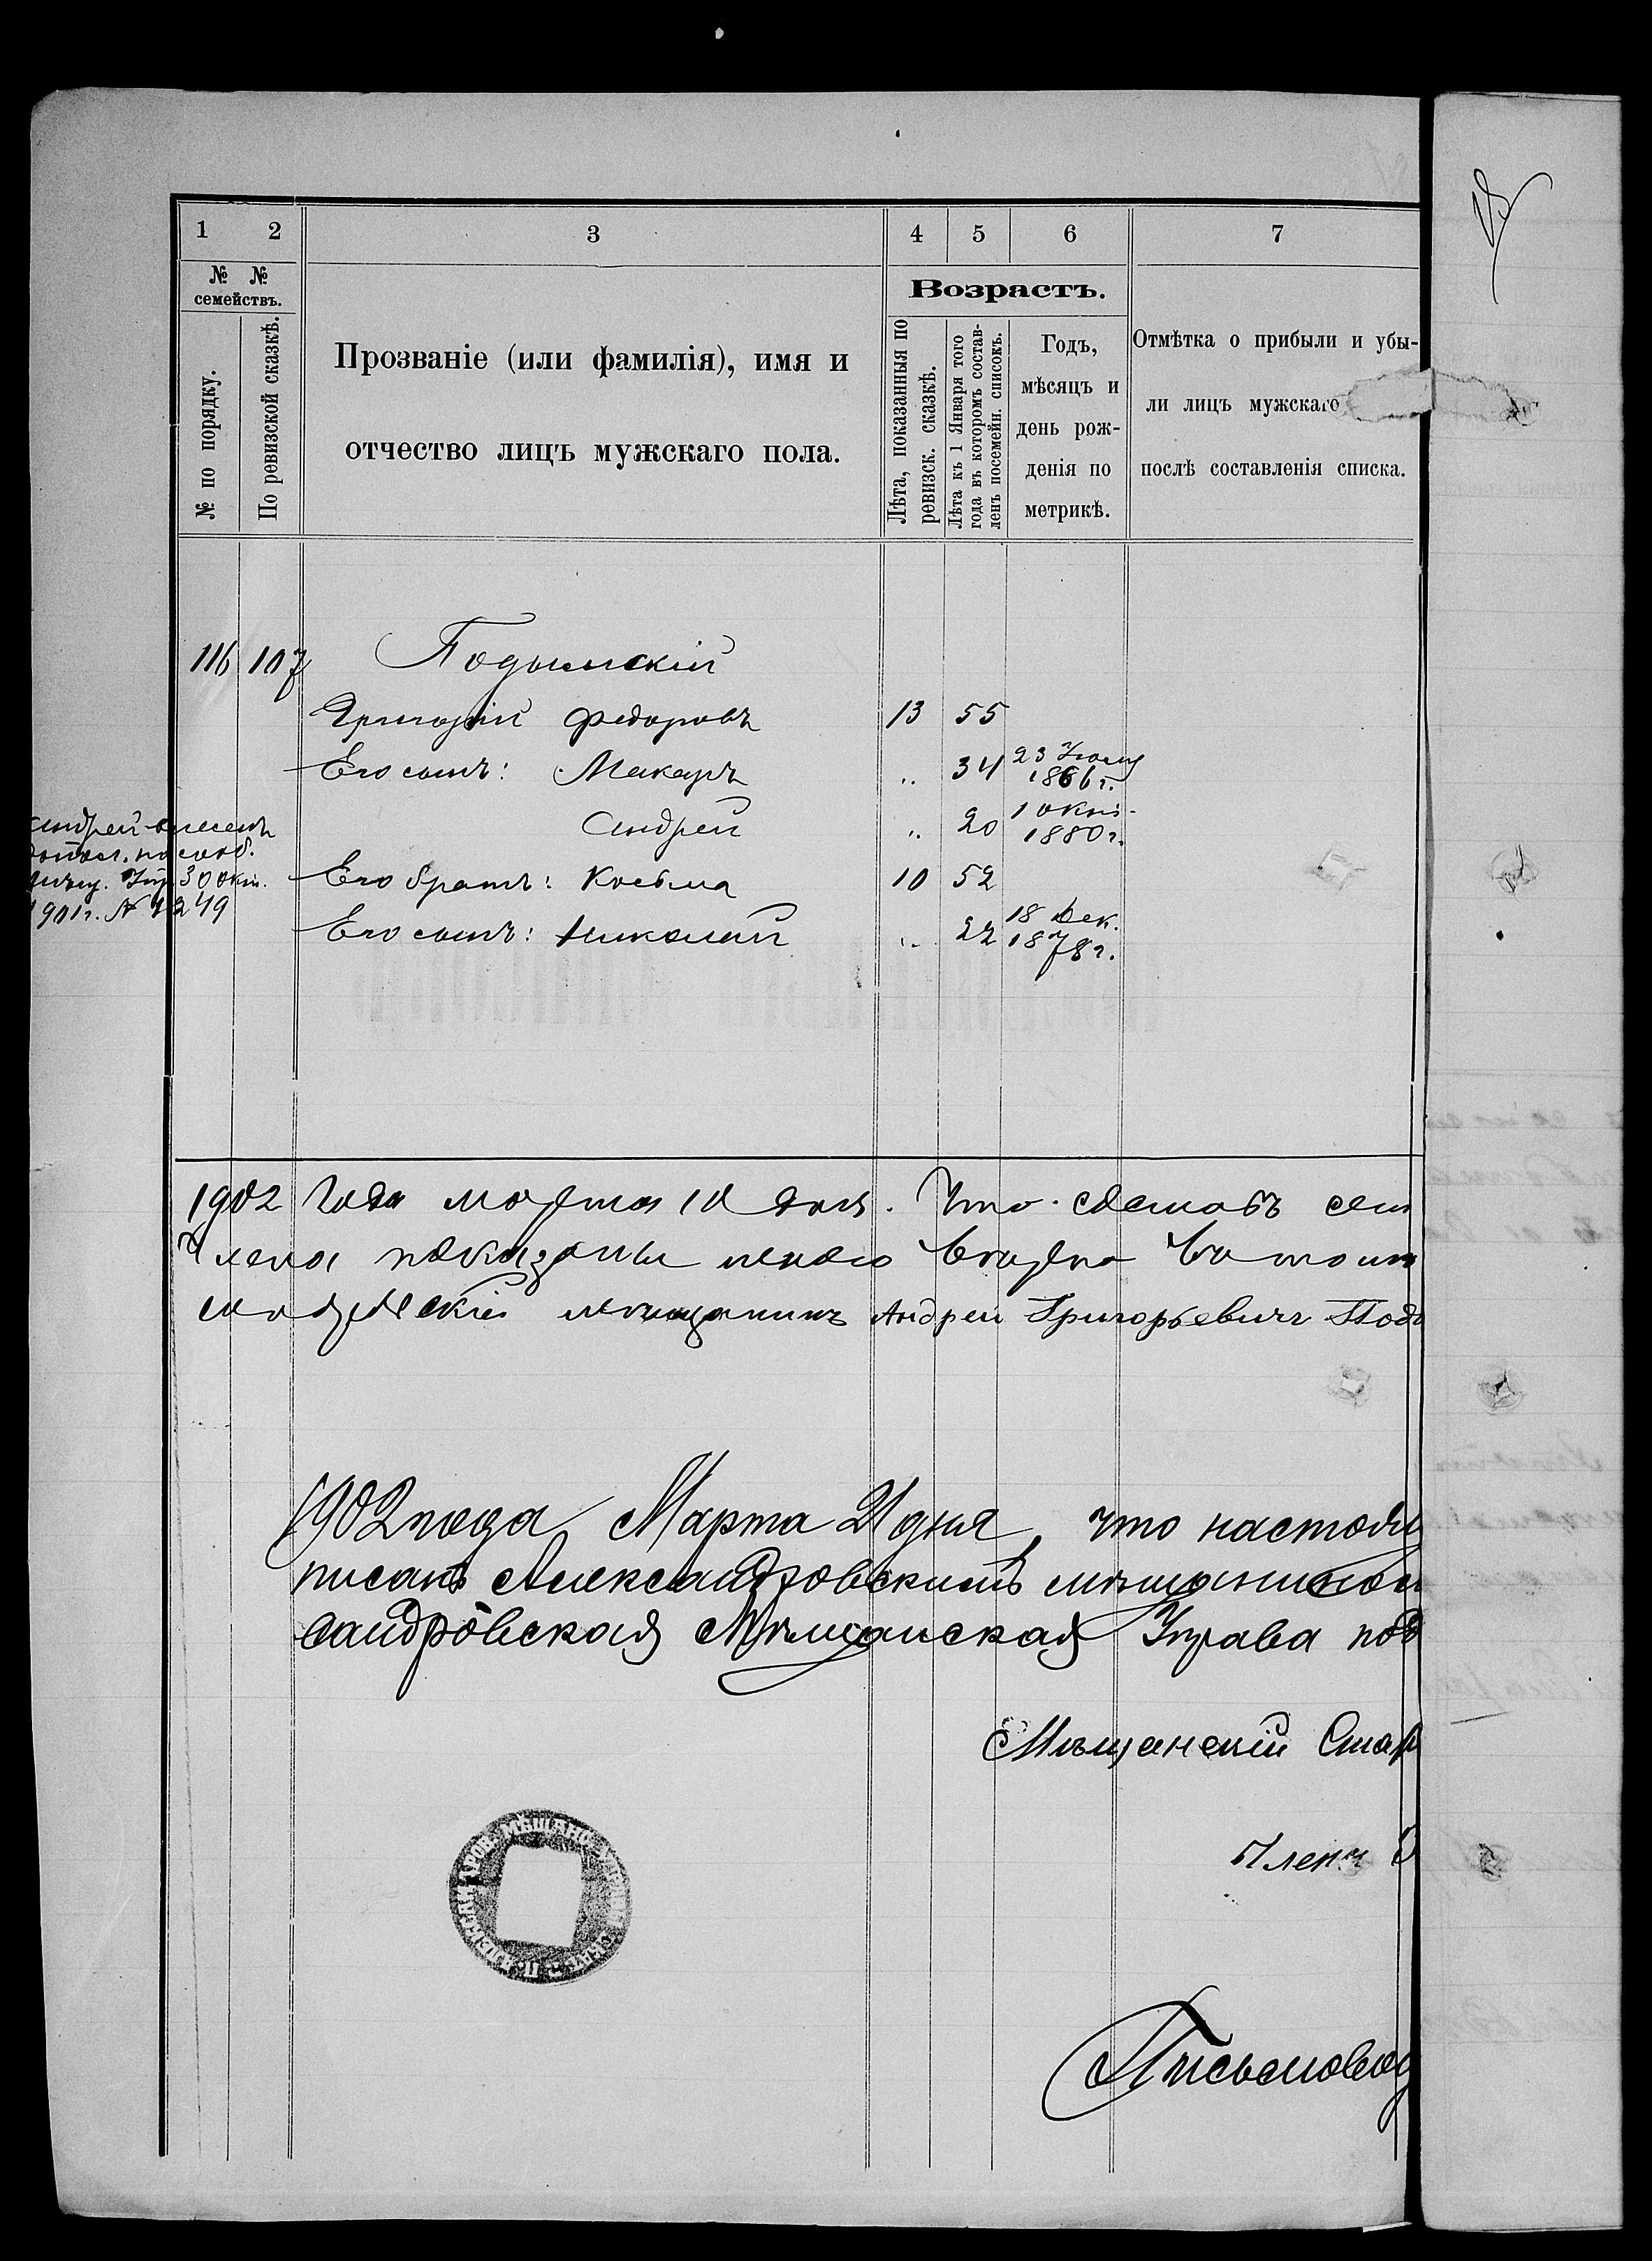 1 2 3 4 5 6 7
№ № семействъ.
№ по порядку.
По ревизской сказкѣ.
Прозваніе (или фамилія), имя и
отчество лицъ мужскаго пола.
Возрастъ.
Лѣта, показанныя по
ревизск. сказкѣ.
Лѣта къ 1 Января того
года въ которомъ состав-
ленъ посемейн. списокъ.
Годъ,
мѣсяцъ и
день рож-
денія по
метрикѣ.
Отмѣтка о прибыли и убы-
ли лицъ мужскаго
послѣ составленія списка.
116 107 Подымскій
Григорій Федоровъ 13 55
Его сынъ: Макаръ „ 34 23
1866 г.
Андрей „ 20 1 Окт.
1880 г.
Андрей внесенъ
30 окт.
1901 г. № 1249
Его братъ: Косьма 10 52
Его сынъ: Николай „ 22 18 Дек.
1878 г.
1902 года марта 10 дня. Что составъ сем
члена показаны мною вѣрно въ томъ
мѣщанинъ Андрей Григорьевичъ Подъ
1902 года Марта 21 дня, что настоящ
писанъ Александровскимъ мѣщанином
сандровская Мѣщанская Управа под
Мѣщанскій Стар
Членъ
Письмовод
АЛЕКСАНДРОВ. МѢЩАНС. УПРАВЫ